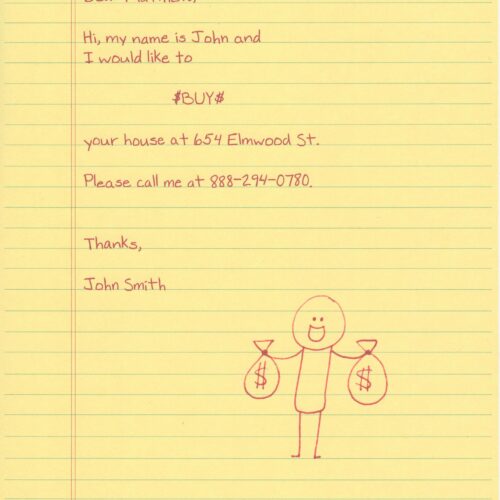 Hi, my name is John and
I would like to
$BUY$
your house at 654 Elmwood St.
Please call me at 888-294-0780.
Thanks,
John Smith
$ $